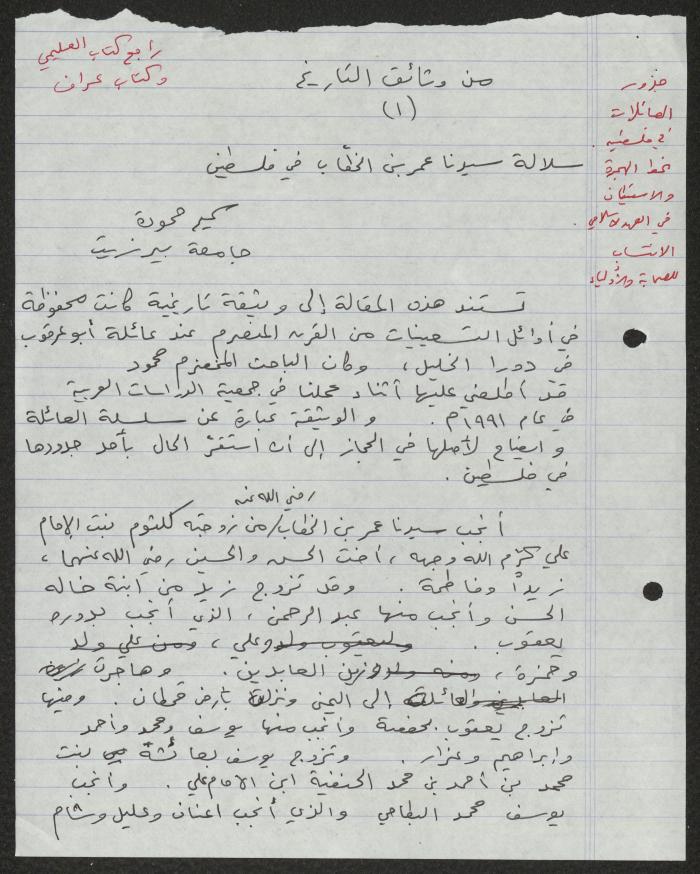 راجع كتاب العليمي
وكتاب عراف
من وثائق التاريخ
(١)
سلالة سيدنا عمر بن الخطّاب في فلسطين
جذور
العائلات
في فلسطين.
خط الهجرة
والاستيطان
في العهد الاسلامي.
الانتساب
للصحابة والأولياء
سميح حمودة
جامعة بيرزيت
تستند هذه المقالة إلى وثيقة تاريخية كانت محفوظة
في أوائل التسعينات من القرن المنصرم عند عائلة أبو عرقوب
في دورا الخليل، وكان الباحث المخضرم محمود
قد أطلعني عليها أثناء عملنا في جمعية الدراسات العربية
في عام ١٩٩١م. والوثيقة عبارة عن سلسلة العائلة
وايضاح لأصلها في الحجاز إلى أن استقرّ الحال بأحد جدودها
في فلسطين.
رضي الله عنه
أنجب سيدنا عمر بن الخطاب/من زوجته كلثوم بنت الإمام
علي كرّم الله وجهه، أخت الحسن والحسين رضي الله عنهما،
زيداً وفاطمة. وقد تزوج زيد من ابنة خاله
الحسن وأنجب منها عبد الرحمن، الذي أنجب بدوره
يعقوب. وليعقوب ولد وعلي، ومن علي ولد
وحمزة، ومنه ولد وزين العابدين. وهاجرت
العائلة إلى اليمن ونزلت بأرض قحطان. ومنها
تزوج يعقوب بحفصة وأنجب منها يوسف ومحمد وأحمد
وابراهيم وعنزار. وتزوج يوسف بعائشة بنت
محمد بن أحمد بن محمد الحنفية ابن الامام علي. وأنجب
يوسف محمد البطاحي والذي أنجب اعنان وعليل وشام